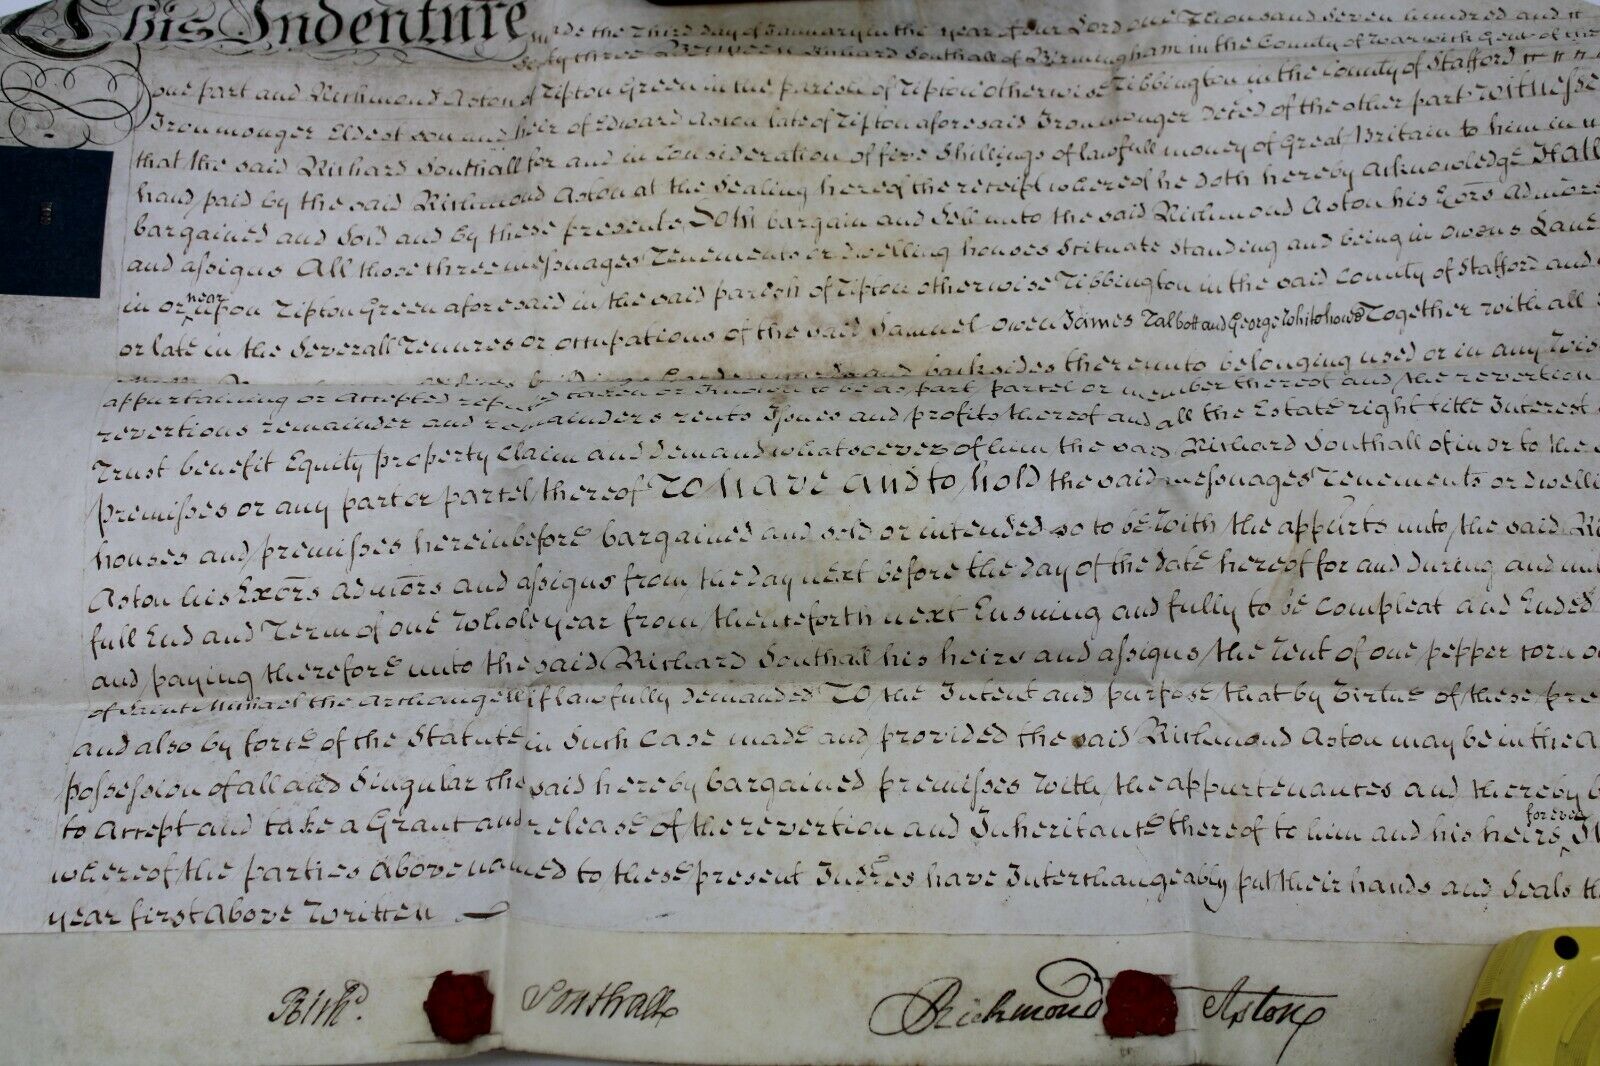 This Indenture made the third day of January in the year of our Lord one Thousand Seven hundred and
Sixty three Between Richard Southall of Birmingham in the County of Warwick Gent of the
one part and Richmond Aston of Tipton Green in the parish of Tipton otherwise Tibbington in the County of Stafford
Ironmonger Eldest son and heir of Edward Aston late of Tipton aforesaid Ironmonger Deced of the other part Witnesse
that the said Richard Southall for and in Consideration of five Shillings of lawfull money of Great Britain to him in
hand paid by the said Richmond Aston at the Sealing hereof the receipt whereof he doth hereby Acknowledge Hath
bargained and Sold and by these presents Doth bargain and Sell unto the said Richmond Aston his Exōrs Admōrs
and assigns All those three messuages Tenements or dwelling houses Scituate standing and being in Owens Lane
in or near upon Tipton Green aforesaid in the said parish of Tipton otherwise Tibbington in the said County of Stafford and
or late in the Severall Tenures or occupations of the said Samuel Owen James Talbott and George Whitehouse Together with all
buildings and backsides thereunto belonging used or in any Wis
appurtaining or accepted reputed taken or known to be as part parcel or member thereof and the revertion
revertions remainder and remainders rents Issues and profits thereof and all the Estate right title Interest
Trust benefit Equity property Claim and demand whatsoever of him the said Richard Southall of in or to the
premisses or any part or parcel thereof To have and to hold the said messuages Tenements or dwelli
houses and premisses hereinbefore bargained and sold or intended so to be With the appurts unto the said Ri
Aston his Exōrs admōrs and assigns from the day next before the day of the date hereof for and During and
full End and Term of one Whole year from thenceforth next Ensuing and fully to be Compleat and Ended
and paying therefore unto the said Richard Southall his heirs and assigns the rent of one pepper corn
of Saint Michael the Archangell if lawfully demanded To the Intent and purpose that by Virtue of these pre
and also by force of the Statute in Such Case made and provided the said Richmond Aston may be in the A
possession of all and Singular the said hereby bargained premisses With the appurtenances and thereby
to Accept and take a Grant and release of the revertion and Inheritance thereof to him and his heirs forever
whereof the parties Above named to these present Indres have Interchangeably put their hands and Seals
year first Above Written
Richd. Southall Richmond Aston